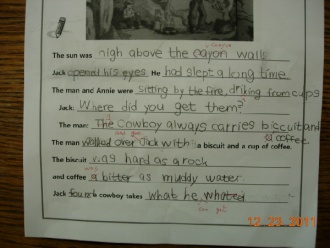 canyon
The sun was high above the cayon walls
Jack opened his eyes. He had slept a long time.
The man and Annie were sitting by the fire, driking from cups
Jack: Where did you get them?
The man: The cowboy always carries biscuit and
coffee
and got
The man walked over Jack with a biscuit and a cup of coffee.
The biscuit was hard as a rock
was
and coffee a bitter as muddy water
Jack found a cowboy takes what he whated
can get
12 23 2011